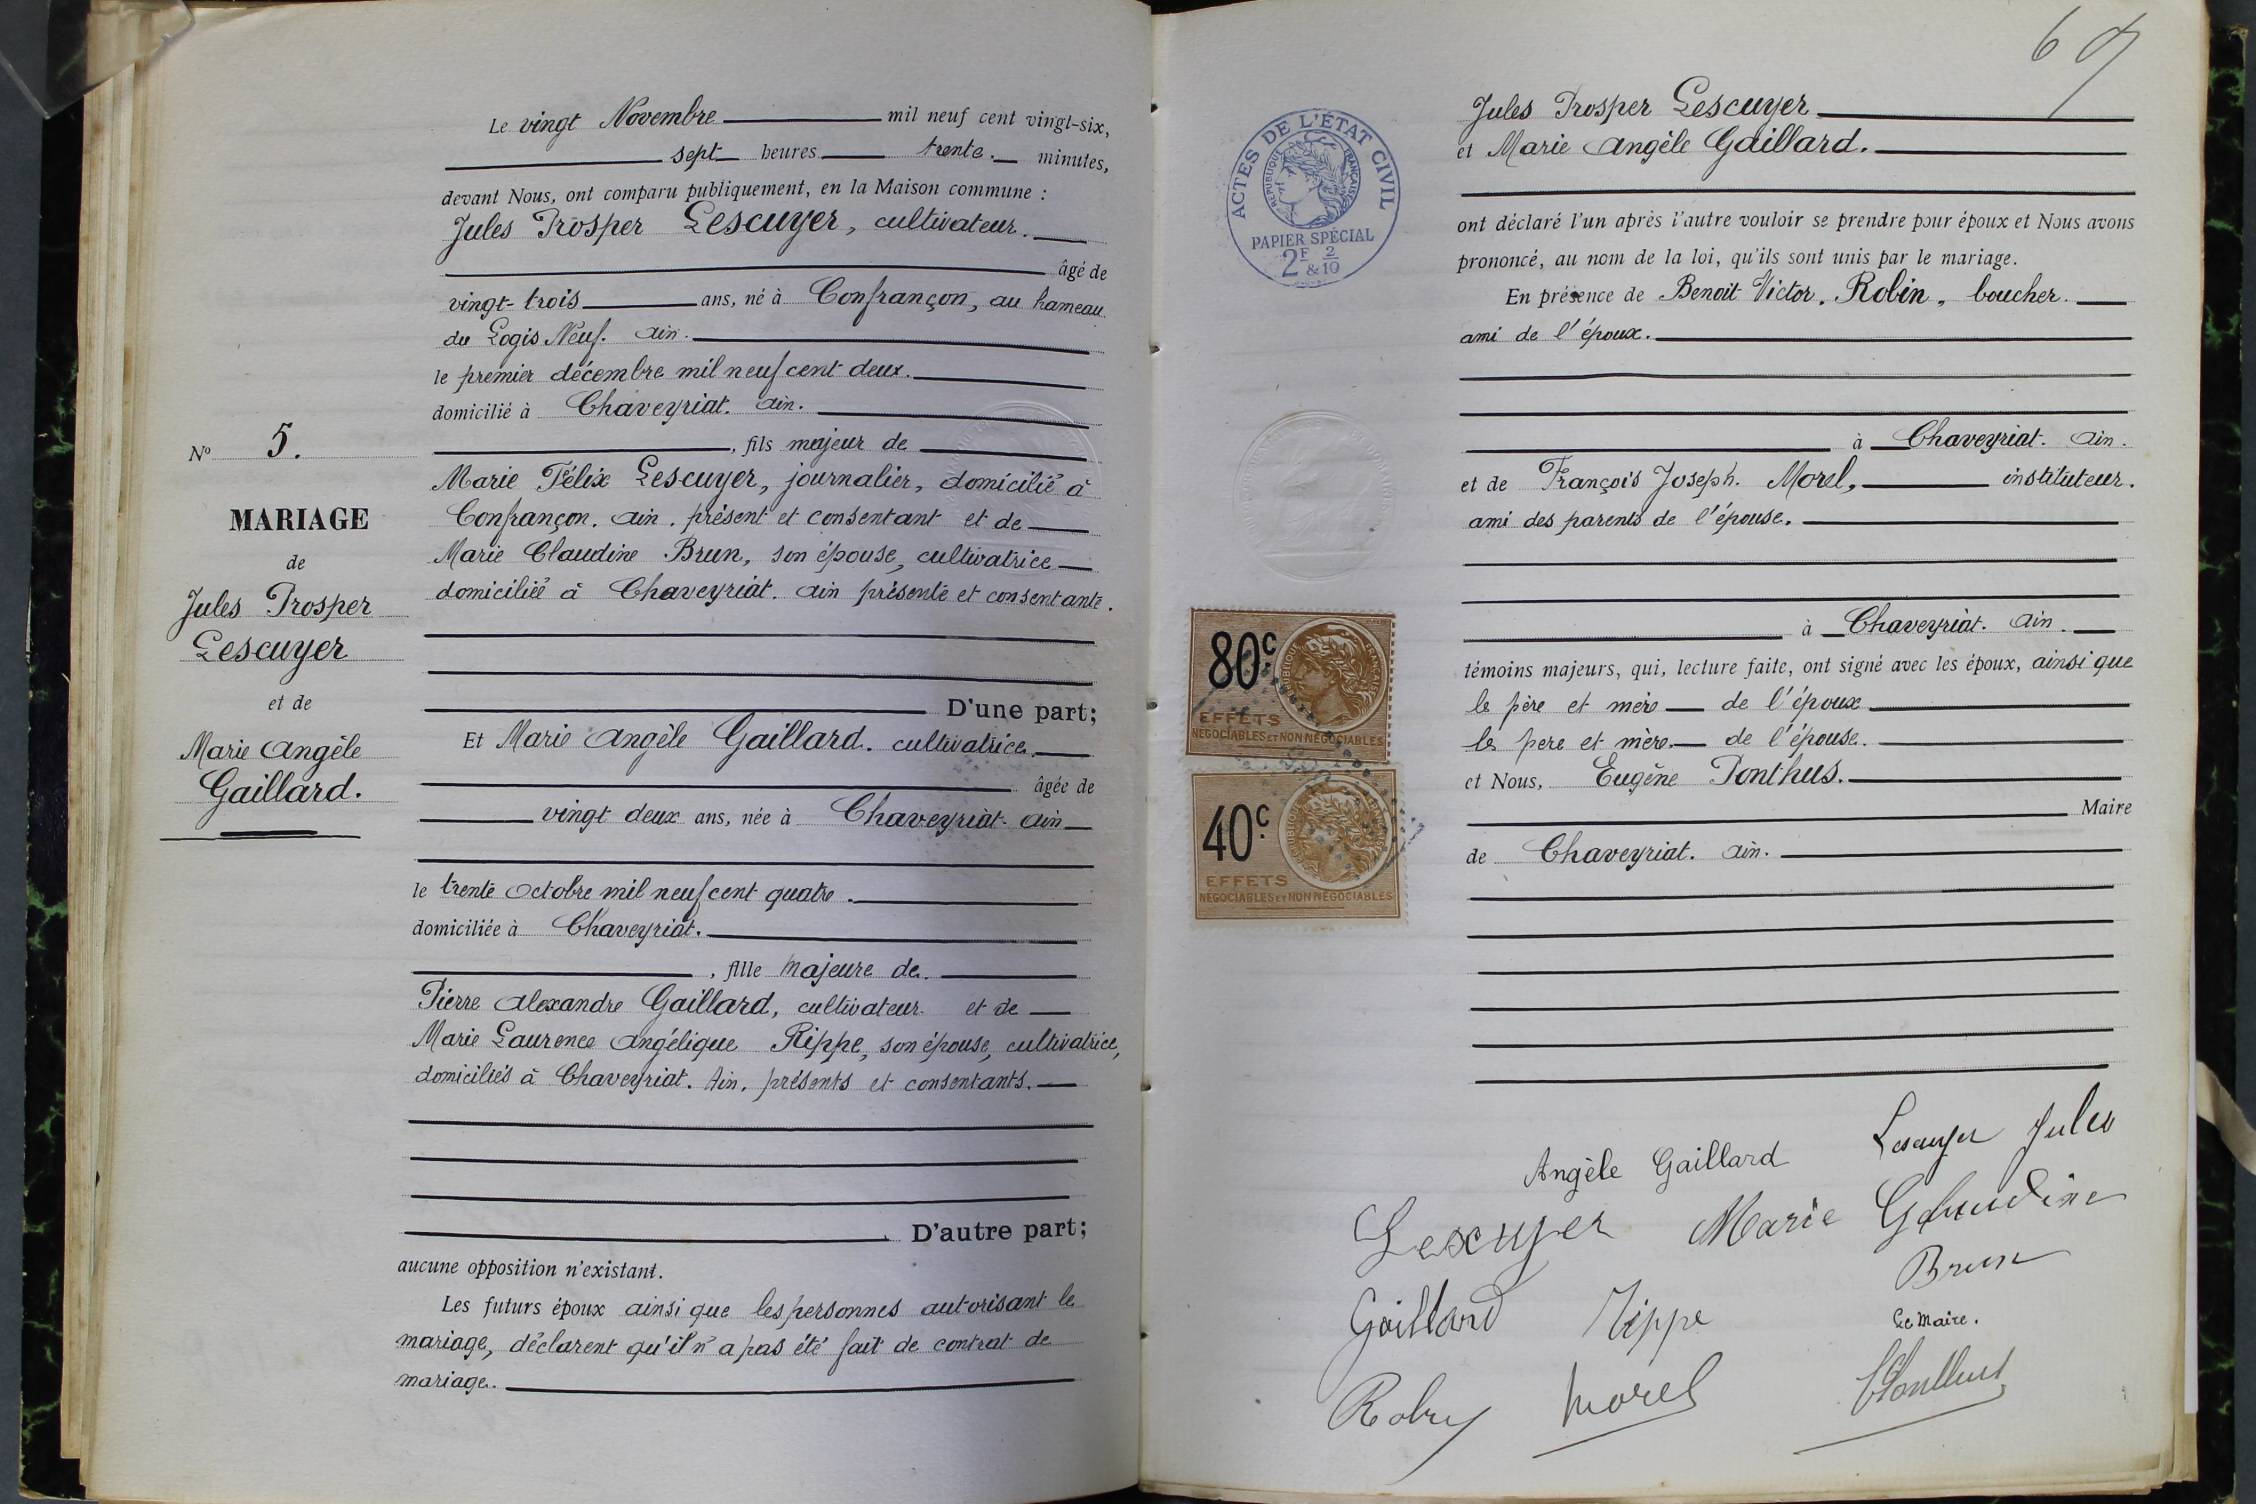 Le vingt Novembre mil neuf cent vingt-six,
sept heures trente. minutes,
devant Nous, ont comparu publiquement, en la Maison commune :
Jules Prosper Lescuyer, cultivateur.
âgé de
vingt-trois ans, né à Confrançon, au hameau
du Logis Neuf. Ain.
le premier décembre mil neuf cent deux.
domicilié à Chaveyriat. Ain.
, fils majeur de
Marie Félix Lescuyer, journalier, domicilié à
Confrançon. Ain. présent et consentant et de
Marie Claudine Brun, son épouse, cultivatrice
domiciliée à Chaveyriat. Ain présente et consentante.
D'une part;
Nº 5.
MARIAGE
de
Jules Prosper
Lescuyer
et de
Marie Angèle
Gaillard.
Et Marie Angèle Gaillard. cultivatrice.
âgée de
vingt deux ans, née à Chaveyriat. Ain
le trente octobre mil neuf cent quatre.
domiciliée à Chaveyriat.
, fille majeure de.
Pierre Alexandre Gaillard, cultivateur. et de
Marie Laurence Angélique Rippe, son épouse, cultivatrice,
domiciliés à Chaveyriat. Ain. présents et consentants.
D'autre part;
aucune opposition n'existant.
Les futurs époux ainsi que les personnes autorisant le
mariage, déclarent qu'il n'a pas été fait de contrat de
mariage.
Jules Prosper Lescuyer
et Marie Angèle Gaillard.
ont déclaré l'un après l'autre vouloir se prendre pour époux et Nous avons
prononcé, au nom de la loi, qu'ils sont unis par le mariage.
En présence de Benoit Victor. Robin, boucher.
ami de l'époux.
à Chaveyriat. Ain.
et de François Joseph. Morel, instituteur.
ami des parents de l'épouse.
à Chaveyriat. Ain.
témoins majeurs, qui, lecture faite, ont signé avec les époux, ainsi que
le père et mère de l'époux
le père et mère. de l'épouse.
et Nous, Eugène Ponthus.
Maire
de Chaveyriat. Ain.
Angèle Gaillard Lescuyer Jules
Lescuyer Marie Claudine
Brun
Gaillard Rippe
Le Maire.
Morel
ACTES DE L'ÉTAT CIVIL
RÉPUBLIQUE FRANÇAISE
PAPIER SPÉCIAL
2F 2
&10
80c.
RÉPUBLIQUE FRANÇAISE
EFFETS
NÉGOCIABLES ET NON NÉGOCIABLES
40c.
RÉPUBLIQUE FRANÇAISE
EFFETS
NÉGOCIABLES ET NON NÉGOCIABLES